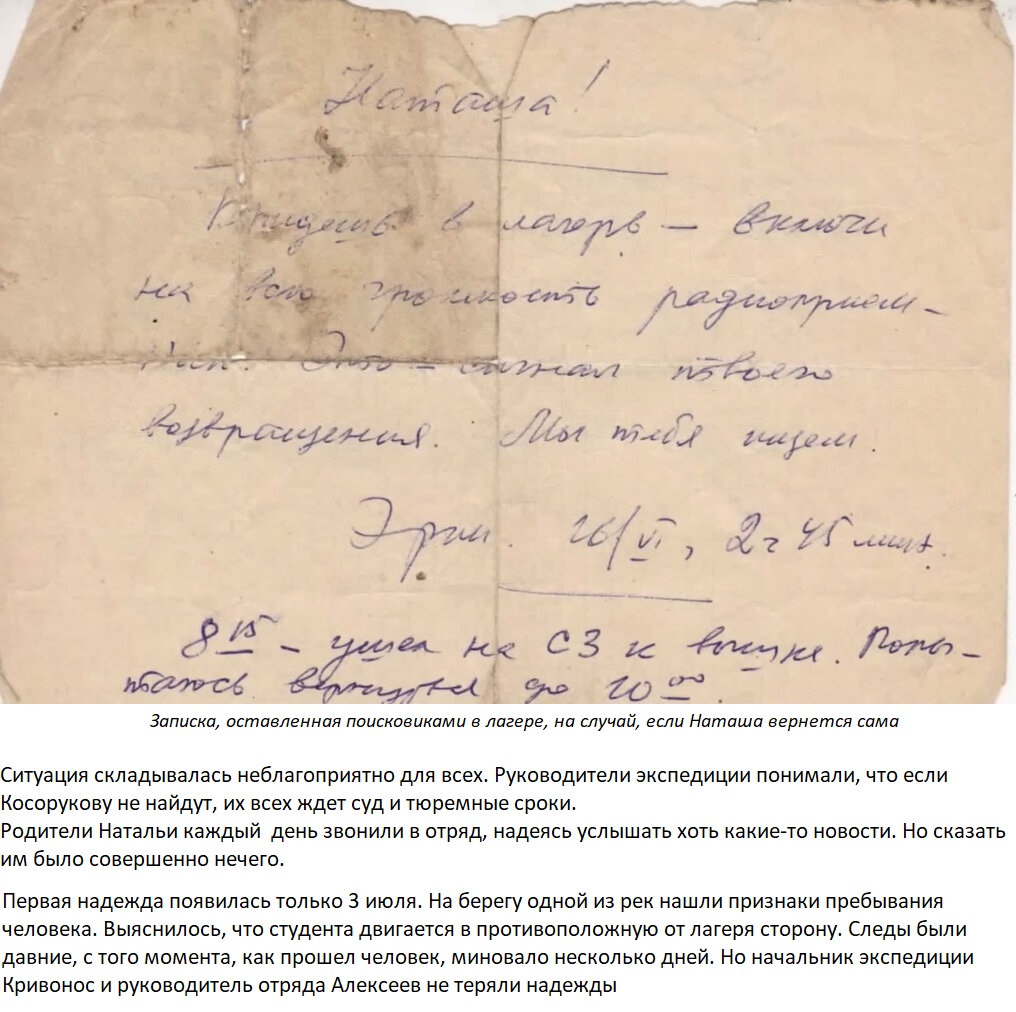 Наташа!
Придешь в лагерь – включи
на всю громкость радиоприем-
ник. Это – сигнал твоего
возвращения. Мы тебя ищем.
26/VI, 2 ч 45 мин.
8 15 – ушел на СЗ к вышке. Попы-
таюсь вернуться до 10 00.
Записка, оставленная поисковиками в лагере, на случай, если Наташа вернется сама
Ситуация складывалась неблагоприятно для всех. Руководители экспедиции понимали, что если
Косорукову не найдут, их всех ждет суд и тюремные сроки.
Родители Натальи каждый день звонили в отряд, надеясь услышать хоть какие-то новости. Но сказать
им было совершенно нечего.
Первая надежда появилась только 3 июля. На берегу одной из рек нашли признаки пребывания
человека. Выяснилось, что студента двигается в противоположную от лагеря сторону. Следы были
давние, с того момента, как прошел человек, миновало несколько дней. Но начальник экспедиции
Кривонос и руководитель отряда Алексеев не теряли надежды